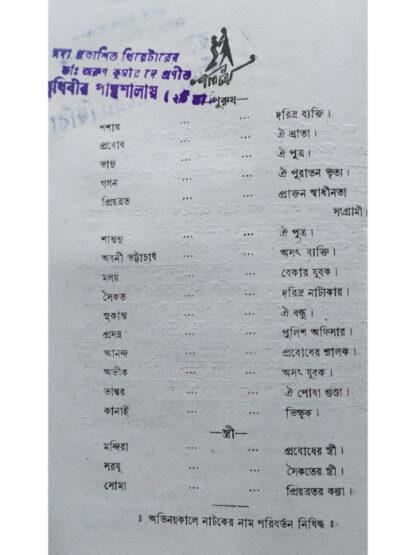 সদ্য প্রকাশিত থিয়েটারের
ডাঃ অরুণ কুমার দে প্রণীত
পৃথিবীর পান্থশালায় ( ২টি স্ত্রী )
পুরুষ—
শশাঙ্ক ... ... দরিদ্র ব্যক্তি।
প্রবোধ ... ... ঐ ভ্রাতা।
ভানু ... ... ঐ পুত্র।
গগন ... ... ঐ পুরাতন ভৃত্য।
প্রিয়ব্রত ... ... প্রাক্তন স্বাধীনতা
সংগ্রামী।
শান্তনু ... ... ঐ পুত্র।
অবনী ভট্টাচার্য ... ... অসৎ ব্যক্তি।
মলয় ... ... বেকার যুবক।
সৈকত ... ... দরিদ্র নাট্যকার।
সুকান্ত ... ... ঐ বন্ধু।
প্রসন্ন ... ... পুলিশ অফিসার।
আনন্দ ... ... প্রবোধের শ্যালক।
অভীক ... ... অসৎ যুবক।
ভাস্কর ... ... ঐ পোষা গুণ্ডা।
কানাই ... ... ভিক্ষুক।
—স্ত্রী—
মন্দিরা ... ... প্রবোধের স্ত্রী।
সরযূ ... ... সৈকতের স্ত্রী।
সোমা ... ... প্রিয়ব্রতর কন্যা।
॥ অভিনয়কালে নাটকের নাম পরিবর্তন নিষিদ্ধ ॥